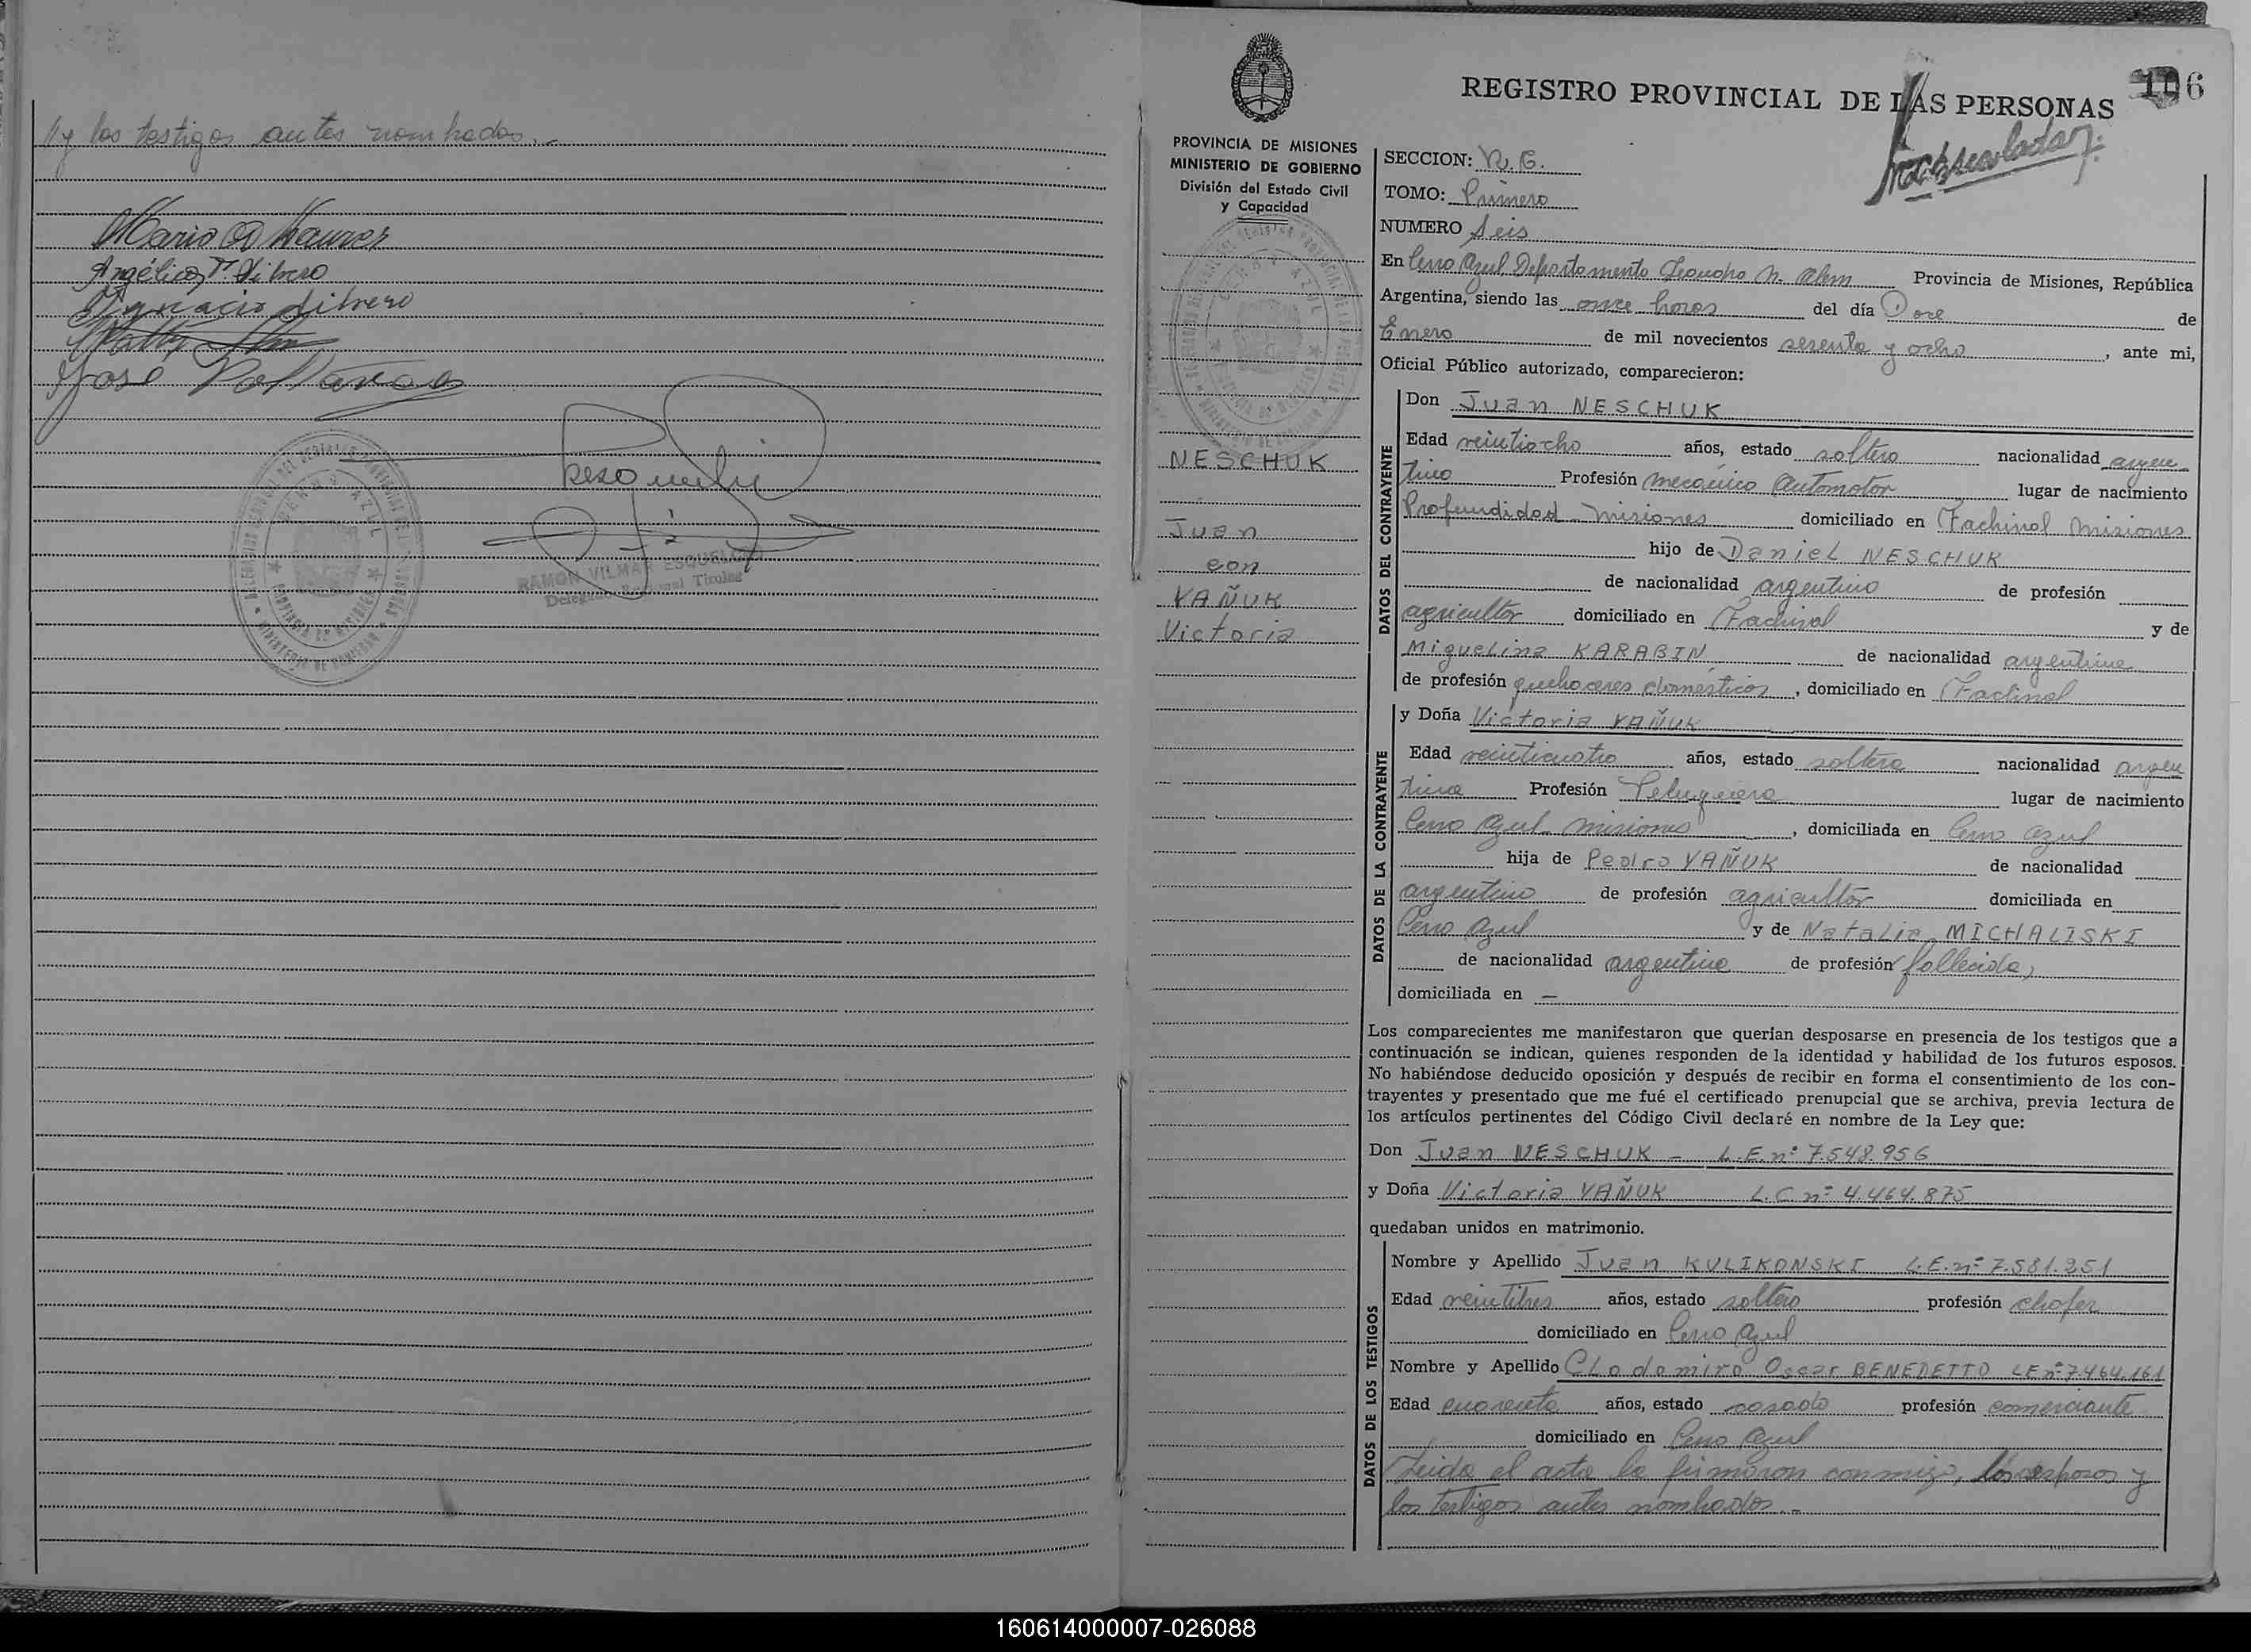 //y los testigos antes nombrados.-
Mario A Maurer
Angélica T. Librero
Ygnacio Librero
José
RAMON VILMAR ESQUEL
Delegado Titular
106
REGISTRO PROVINCIAL DE LAS PERSONAS
PROVINCIA DE MISIONES
MINISTERIO DE GOBIERNO
División del Estado Civil
y Capacidad
NESCHUK
Juan
con
YAÑUK
Victoria
SECCION:
TOMO: Primero
NUMERO Seis
En Cerro Azul Departamento Leandro N. Alem Provincia de Misiones, República
Argentina, siendo las once horas del día Doce de
Enero de mil novecientos sesenta y ocho, ante mi,
Oficial Público autorizado, comparecieron:
DATOS DEL CONTRAYENTE
Don Juan NESCHUK
Edad veintiocho años, estado soltero nacionalidad argen
tino Profesión mecánico Automotor lugar de nacimiento
Profundidad - Misiones domiciliado en Fachinal Misiones
hijo de Daniel NESCHUK
de nacionalidad argentino de profesión
agricultor domiciliado en Fachinal y de
Miguelina KARABIN de nacionalidad argentina
de profesión quehaceres domésticos, domiciliado en Fachinal
DATOS DE LA CONTRAYENTE
y Doña Victoria YAÑUK
Edad veinticuatro años, estado soltera nacionalidad argen
tina Profesión Peluquera lugar de nacimiento
Cerro Azul Misiones, domiciliada en Cerro Azul
hija de Pedro YAÑUK de nacionalidad
argentino de profesión agricultor domiciliada en
Cerro Azul y de Natalia MICHALISKI
de nacionalidad argentina de profesión fallecida,
domiciliada en —
Los comparecientes me manifestaron que querían desposarse en presencia de los testigos que a
continuación se indican, quienes responden de la identidad y habilidad de los futuros esposos.
No habiéndose deducido oposición y después de recibir en forma el consentimiento de los con-
trayentes y presentado que me fué el certificado prenupcial que se archiva, previa lectura de
los artículos pertinentes del Código Civil declaré en nombre de la Ley que:
Don Juan NESCHUK - L.E.nº 7.548.956
y Doña Victoria YAÑUK L.C nº 4.464.875
quedaban unidos en matrimonio.
DATOS DE LOS TESTIGOS
Nombre y Apellido Juan KULIKONSKI L.E.nº 7.581.251
Edad veintitres años, estado soltero profesión chofer
domiciliado en Cerro Azul
Nombre y Apellido CLodomiro Oscar BENEDETTO LE nº 7.464.161
Edad cuarenta años, estado casado profesión comerciante
domiciliado en Cerro Azul
Leida el acta la firmaron conmigo, los esposos y
los testigos antes nombrados.-
160614000007-026088